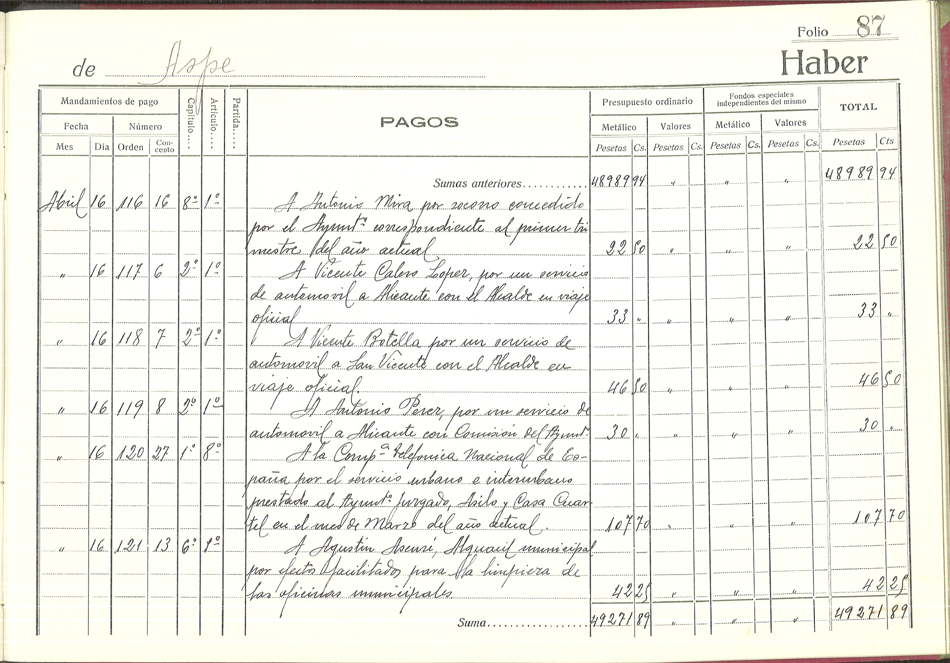 Folio 87
de Aspe Haber
Mandamientos de pago Capítulo.... Artículo.... Partida..... PAGOS Presupuesto ordinario Fondos especiales independientes del mismo TOTAL
Fecha Número Metálico Valores Metálico Valores
Mes Día Orden Concepto Pesetas Cs. Pesetas Cs. Pesetas Cs. Pesetas Cs. Pesetas Cts
Sumas anteriores............ 48989 94 " " " 48989 94
Abril 16 116 16 8º 1º A Antonio Mira por socorro concedido
por el Aymtº correspondiente al primer tri
mestre del año actual 22 50 " " " 22 50
" 16 117 6 2º 1º A Vicente Calero Lopez, por un servicio
de automovil a Alicante con el Alcalde en viaje
oficial 33 " " " " 33 "
" 16 118 7 2º 1º A Vicente Botella por un servicio de
automovil a San Vicente con el Alcalde en
viaje oficial 46 50 " " " 46 50
" 16 119 8 2º 1º A Antonio Perez, por un servicio de
automovil a Alicante con Comisión del Aymtº 30 " " " " 30 "
" 16 120 27 1º 8º A la Compª telefonica Nacional de Es-
paña por el servicio urbano e interurbano
prestado al Aymtº Juzgado, Asilo y Casa Cuar-
tel en el mes de Marzo del año actual. 107 70 " " " 107 70
" 16 121 13 6º 1º A Agustin Asensi, Alguacil municipal
por efectos facilitados para la limpieza de
las oficinas municipales. 42 25 " " " 42 25
Suma.................. 49271 89 " " " 49271 89